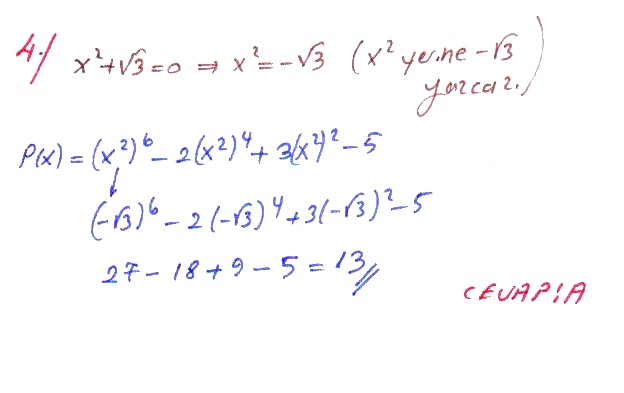 4-/ x²+√3=0 ⇒ x²=-√3 (x² yerine -√3
yazcaz.)
P(x) = (x²)⁶ - 2(x²)⁴ + 3(x²)² - 5
(-√3)⁶ - 2(-√3)⁴ + 3(-√3)² - 5
27 - 18 + 9 - 5 = 13//
CEVAP:A